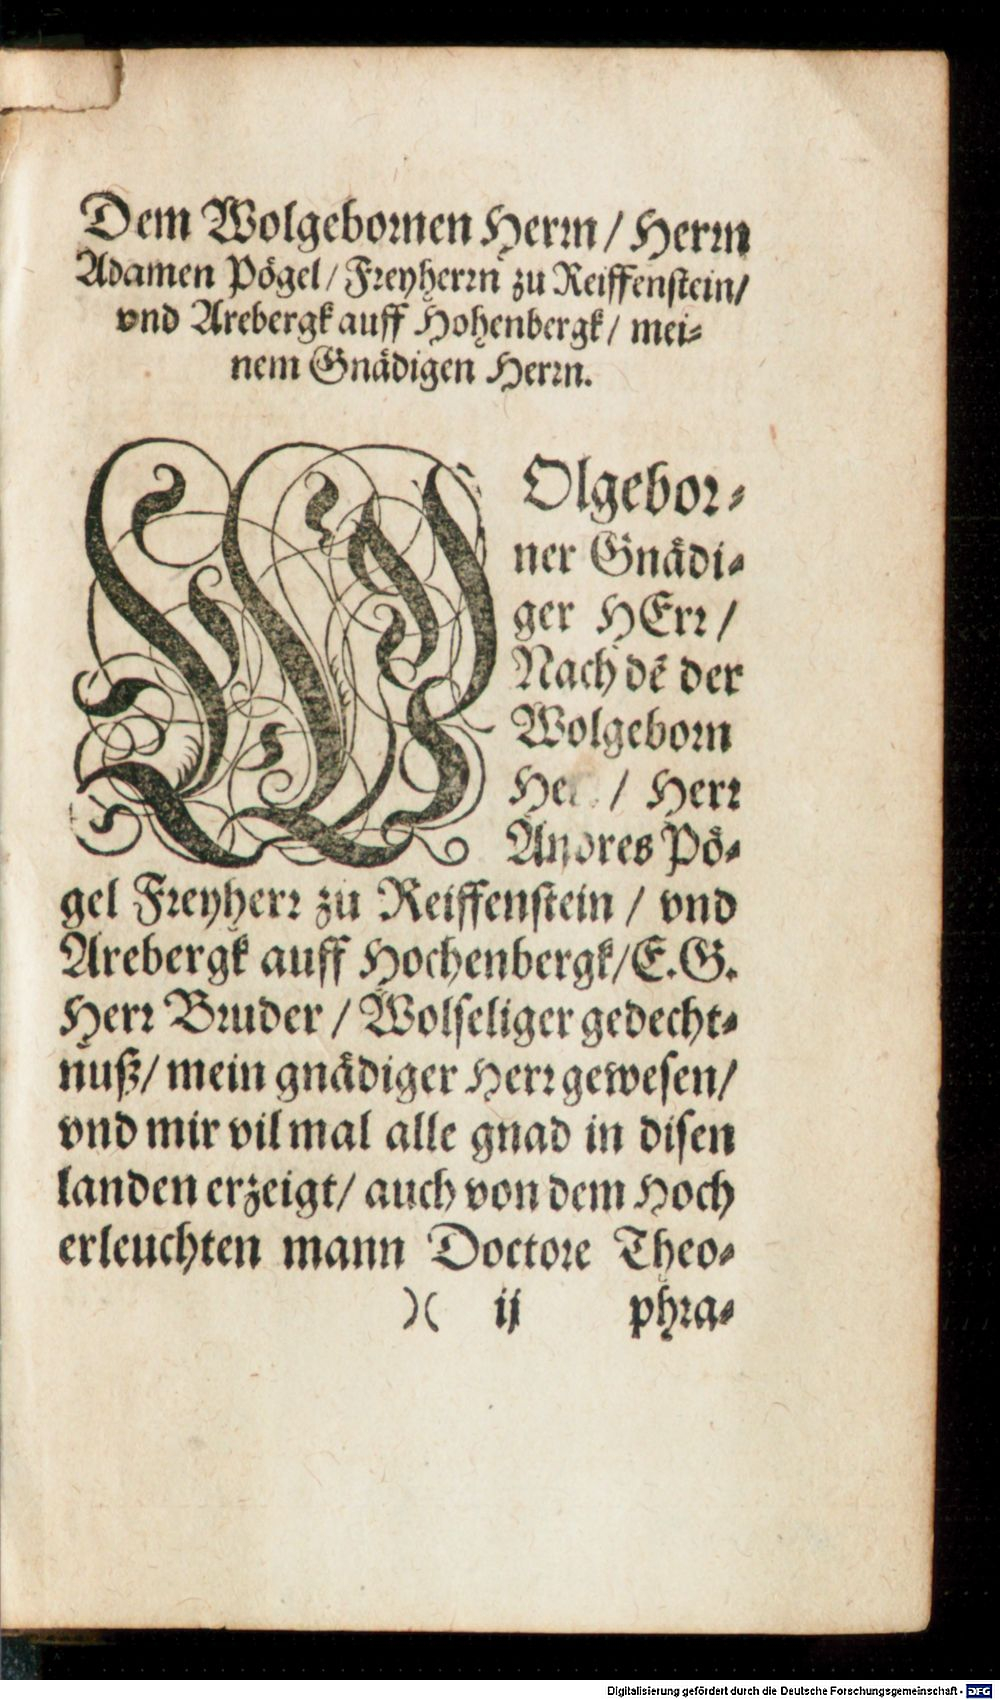 Dem Wolgebornen Herrn / Herrn
Adamen Pögel / Freyherrn zu Reiffenstein /
vnd Arebergk auff Hohenbergk / mei⸗
nem Gnädigen Herrn.
WOlgebor⸗
ner Gnädi⸗
ger HErr /
Nach dē der
Wolgeborn
/ Herr
Andres Pö⸗
gel Freyherr zu Reiffenstein / vnd
Arebergk auff Hochenbergk / E. G.
Herr Bruder / Wolseliger gedecht⸗
nuß / mein gnädiger Herr gewesen /
vnd mir vil mal alle gnad in disen
landen erzeigt / auch von dem Hoch
erleuchten mann Doctore Theo⸗
)( ij phra⸗
Digitalisierung gefördert durch die Deutsche Forschungsgemeinschaft - DFG